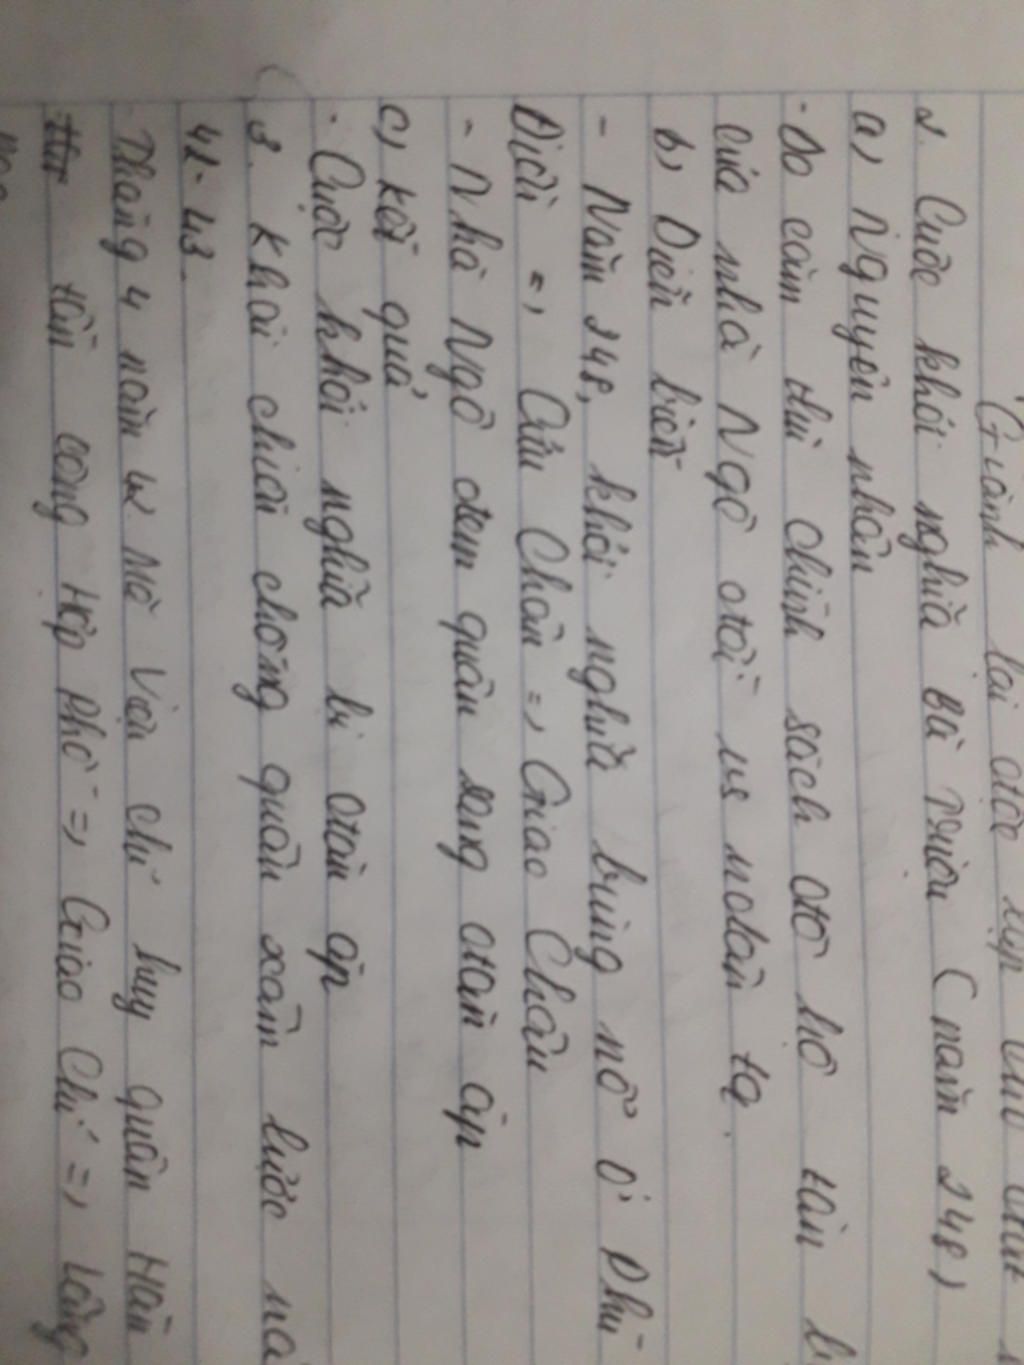 Giành lại độc lập
2. Cuộc khởi nghĩa Bà Triệu (năm 248)
a, Nguyên nhân
- Do căm thù chính sách đô hộ tàn
của nhà Ngô đối vs ndân ta.
b, Diễn biến
- Năm 248, khởi nghĩa bùng nổ ở Phú
Điền => Cửu Chân => Giao Châu
- Nhà Ngô đem quân sang đàn áp
c, Kết quả
- Cuộc khởi nghĩa bị đàn áp
3. Kháng chiến chống quân xâm lược
42-43.
Tháng 4 năm 42 Mã Viện chỉ huy quân Hán
tấn công Hợp Phố => Giao Chỉ => Lãng